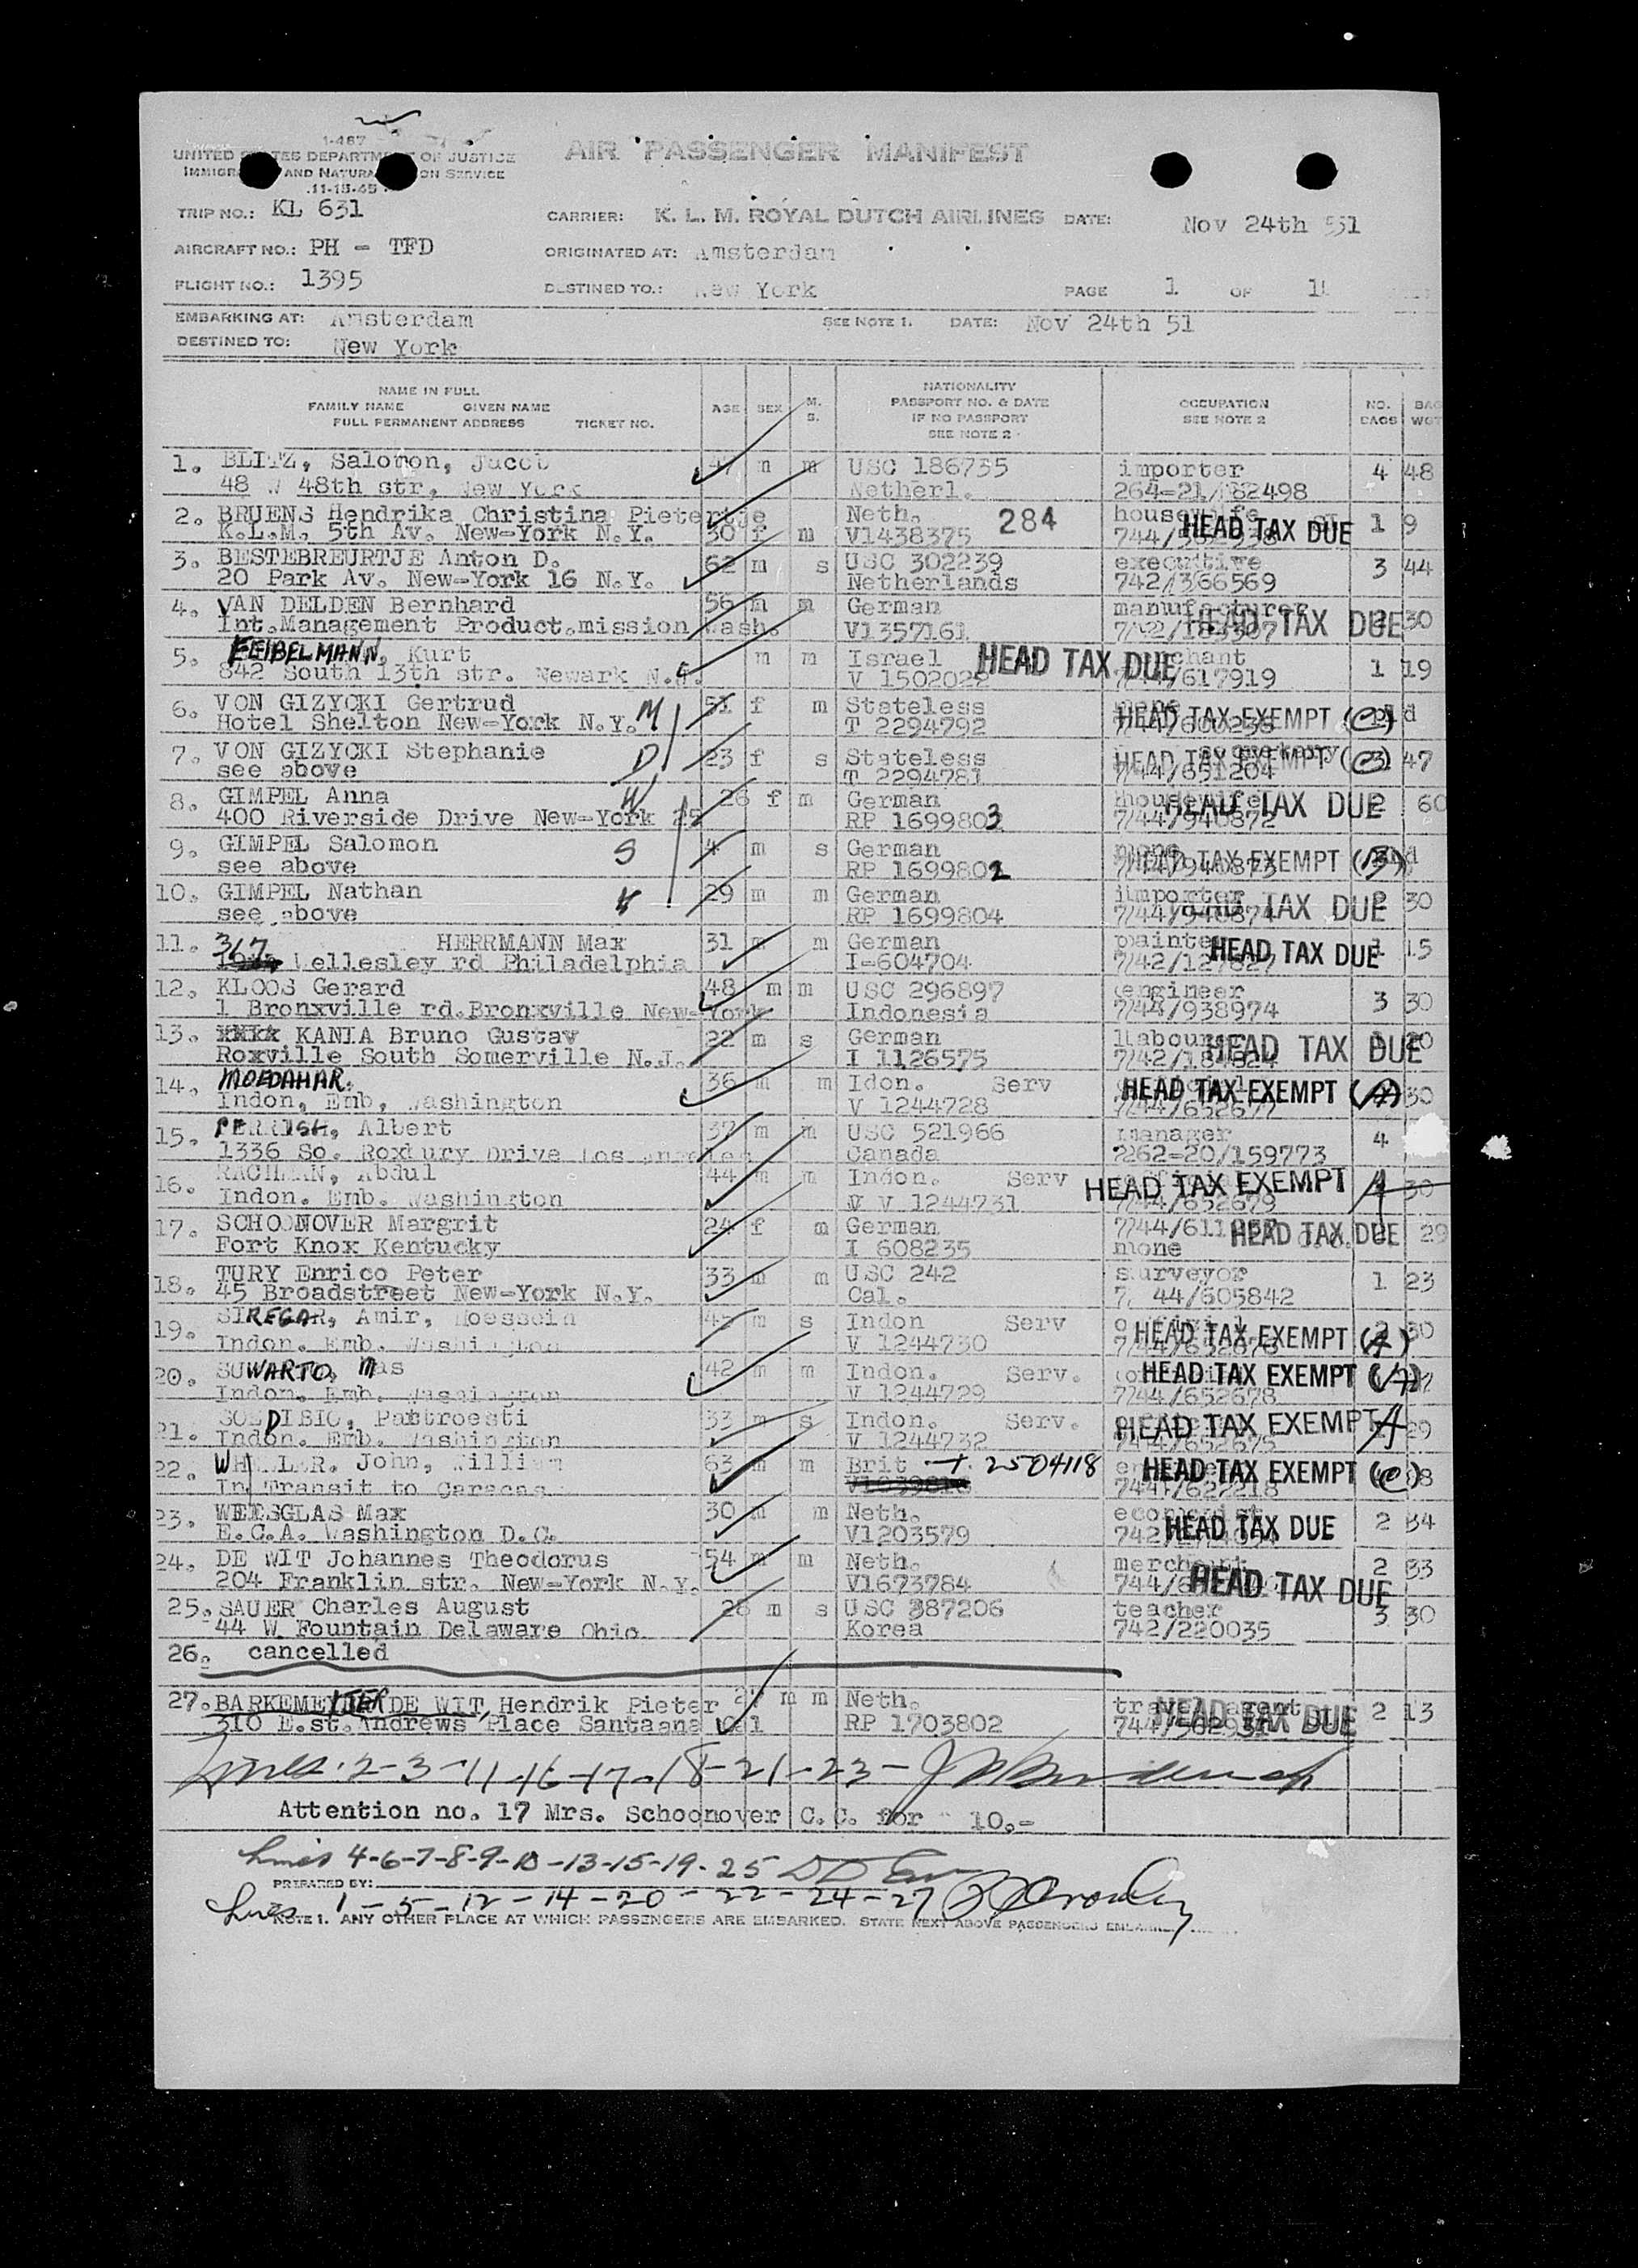 1-467
UNITED STATES DEPARTMENT OF JUSTICE
IMMIGRATION AND NATURALIZATION SERVICE
11-15-45
AIR PASSENGER MANIFEST
TRIP NO.: KL 631
CARRIER: K. L. M. ROYAL DUTCH AIRLINES DATE: Nov 24th 51
AIRCRAFT NO.: PH - TFD
ORIGINATED AT: Amsterdam
FLIGHT NO.: 1395
DESTINED TO.: New York PAGE 1 OF
EMBARKING AT: Amsterdam SEE NOTE 1. DATE: Nov 24th 51
DESTINED TO: New York
NAME IN FULL
FAMILY NAME GIVEN NAME
FULL PERMANENT ADDRESS TICKET NO.
AGE SEX M. S.
NATIONALITY
PASSPORT NO. & DATE
IF NO PASSPORT
SEE NOTE 2
OCCUPATION
SEE NOTE 2
NO. BAGS
BAG WGT
1. BLITZ, Salomon, Jacob 47 m m USC 186735 importer 4 48
48 W 48th str, New York Netherl. 264-21/
2. BRUENS Hendrika Christina Pietertje Neth. 284 housewife HEAD TAX DUE 1 9
K.L.M. 5th Av. New-York N.Y. 30 f m V1438375
3. BESTEBREURTJE Anton D. 62 m s USC 302239 executive 3 44
20 Park Av. New-York 16 N.Y. Netherlands 742/366569
4. VAN DELDEN Bernhard 56 m m German manufacturer HEAD TAX DUE 30
Int.Management Product.mission Wash. V1357161
5. FEIBELMANN, Kurt m m Israel HEAD TAX DUE 1 19
842 South 13th str. Newark N.J. V 1502022
6. VON GIZYCKI Gertrud M 51 f m Stateless HEAD TAX EXEMPT (e)
Hotel Shelton New-York N.Y. T 2294792
7. VON GIZYCKI Stephanie D 23 f s Stateless HEAD TAX EXEMPT (e) 47
see above T 2294781 744/651204
8. GIMPEL Anna W 26 f m German housewife HEAD TAX DUE 2 60
400 Riverside Drive New-York 25 RP 1699803 744/940872
9. GIMPEL Salomon S 4 m s German HEAD TAX EXEMPT
see above RP 1699802 744/940873
10. GIMPEL Nathan 29 m m German importer HEAD TAX DUE 2 30
see above RP 1699804 744/940874
11. 367 HERRMANN Max 31 m m German painter HEAD TAX DUE 1 15
Wellesley rd Philadelphia I-604704
12. KLOOS Gerard 48 m m USC 296897 engineer 3 30
1 Bronxville rd.Bronxville New-York Indonesia 744/938974
13. KANIA Bruno Gustav 22 m s German labourer HEAD TAX DUE 20
Roxville South Somerville N.J. I 1126575
14. MOEDAHAR. 36 m m Idon. Serv HEAD TAX EXEMPT (A) 30
Indon, Emb, Washington V 1244728 744/652677
15. Albert 37 m m USC 521966 manager 4
1336 So. Roxbury Drive Los Angeles Canada 2262-20/159773
16. RACHMAN, Abdul 44 m m Indon. Serv HEAD TAX EXEMPT A 30
Indon. Emb. Washington V 1244731 744/652679
17. SCHOONOVER Margrit 24 f m German HEAD TAX DUE 29
Fort Knox Kentucky I 608235 none
18. TURY Enrico Peter 33 m m USC 242 surveyor 1 23
45 Broadstreet New-York N.Y. Cal. 7 44/605842
19. SIREGAR, Amir, Hoessein m s Indon Serv HEAD TAX EXEMPT (A) 30
Indon. Emb. Washington V 1244730 744/652676
20. SUWARTO, Mas 42 m m Indon. Serv. HEAD TAX EXEMPT (A)
Indon. Emb. Washington V 1244729 744/652678
21. 33 m s Indon. Serv. HEAD TAX EXEMPT A 29
Indon. Emb. Washington V 1244732 744/652675
22. WHEELER, John, William 63 m m Brit T. 2504118 HEAD TAX EXEMPT (e)
In Transit to Caracas 744/622218
23. WEISGLAS Max 30 m m Neth. economist HEAD TAX DUE 2 34
E.C.A. Washington D.C. V1203579
24. DE WIT Johannes Theodorus 54 m m Neth. merchant HEAD TAX DUE 2 33
204 Franklin str. New-York N.Y. V1673784
25. SAUER Charles August 28 m s USC 387206 teacher 3 30
44 W Fountain Delaware Ohio Korea 742/220035
26. cancelled
27. DE WIT, Hendrik Pieter m m Neth. travel agent HEAD TAX DUE 2 13
310 E.st.Andrews Place Santaana Cal RP 1703802
Lines 2-3-11-16-17-18-21-23-
Attention no. 17 Mrs. Schoonover C.C. for 10.-
Lines 4-6-7-8-9-10-13-15-19-25
PREPARED BY:
Lines 1-5-12-14-20-22-24-27
NOTE 1. ANY OTHER PLACE AT WHICH PASSENGERS ARE EMBARKED. STATE NEXT ABOVE PASSENGERS